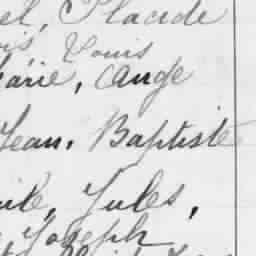 el, Placide
is, Louis
arie, Ange
Jean. Baptiste
ile, Jules,
Joseph